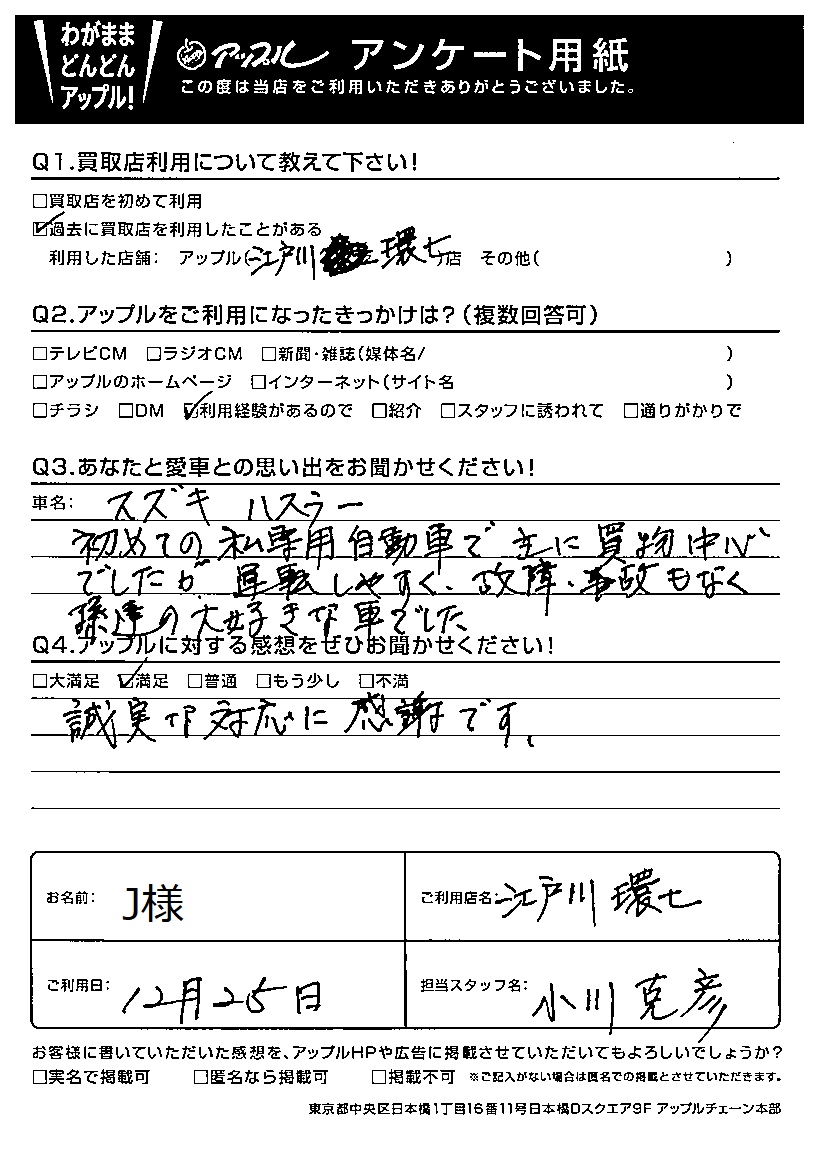 わがまま
どんどん
アップル!
アップル アンケート用紙
この度は当店をご利用いただきありがとうございました。
Q1.買取店利用について教えて下さい!
□買取店を初めて利用
☑過去に買取店を利用したことがある
利用した店舗: アップル(江戸川 環七)店 その他( )
Q2.アップルをご利用になったきっかけは?(複数回答可)
□テレビCM □ラジオCM □新聞・雑誌(媒体名/ )
□アップルのホームページ □インターネット(サイト名 )
□チラシ □DM ☑利用経験があるので □紹介 □スタッフに誘われて □通りがかりで
Q3.あなたと愛車との思い出をお聞かせください!
車名: スズキ ハスラー
初めての私専用自動車で主に買物中心
でしたが運転しやすく、故障・事故もなく
孫達の大好きな車でした
Q4.アップルに対する感想をぜひお聞かせください!
□大満足 ☑満足 □普通 □もう少し □不満
誠実な対応に感謝です。
お名前: J様
ご利用店名: 江戸川環七
ご利用日: 12月25日
担当スタッフ名: 小川克彦
お客様に書いていただいた感想を、アップルHPや広告に掲載させていただいてもよろしいでしょうか?
□実名で掲載可 □匿名なら掲載可 □掲載不可 ※ご記入がない場合は匿名での掲載とさせていただきます。
東京都中央区日本橋1丁目16番11号日本橋Dスクエア9F アップルチェーン本部